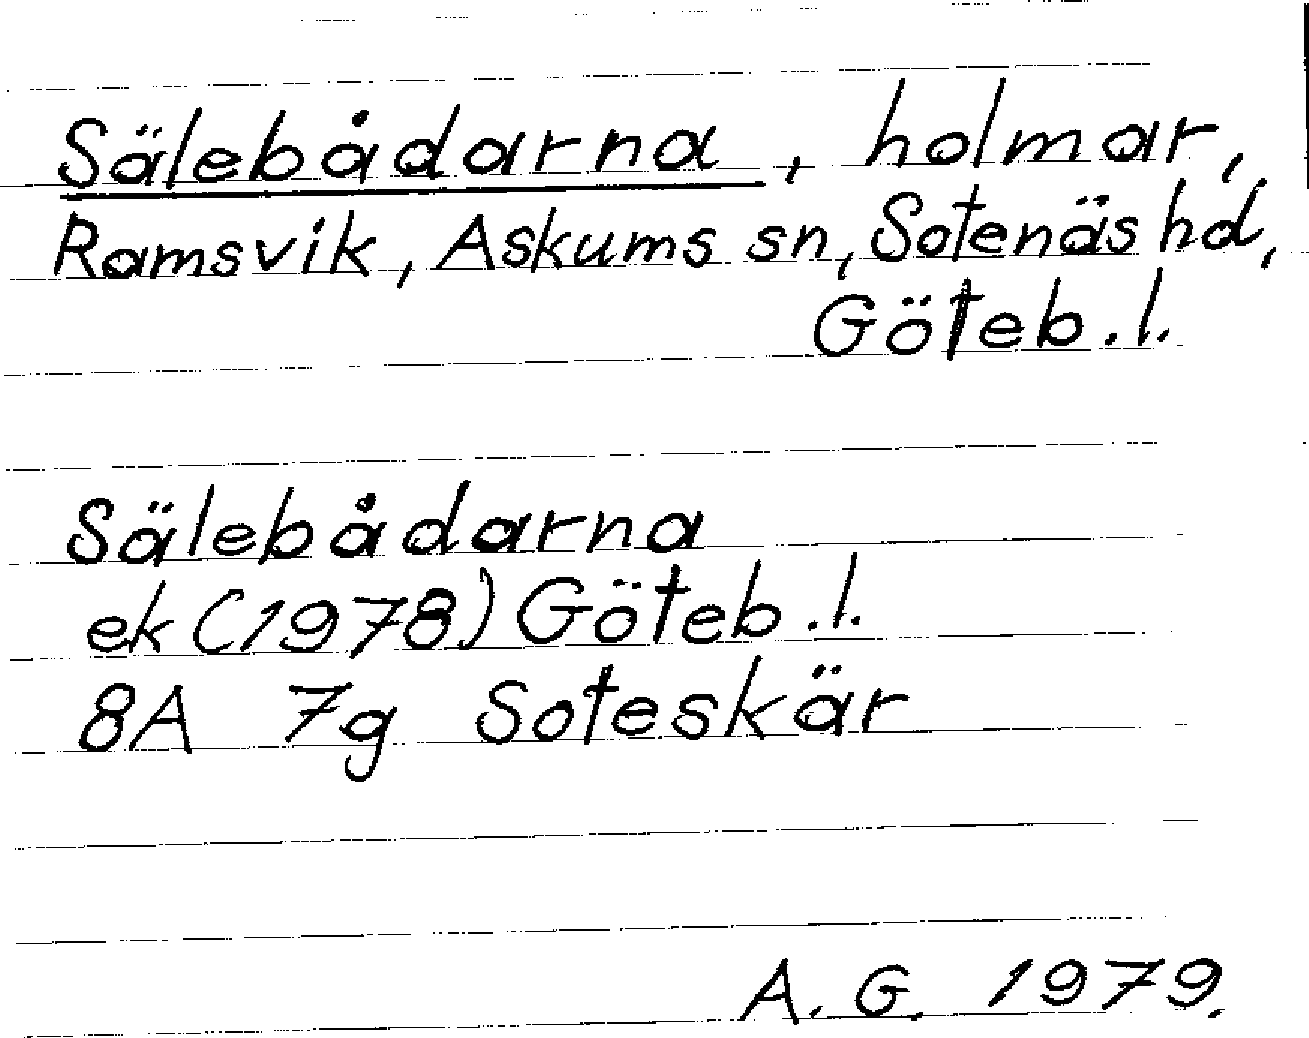 Sälebådarna, holmar,
Ramsvik, Askums sn, Sotenäs hd,
Göteb.l.
Sälebådarna
ek (1978) Göteb.l.
8A 7g Soteskär
A.G. 1979.